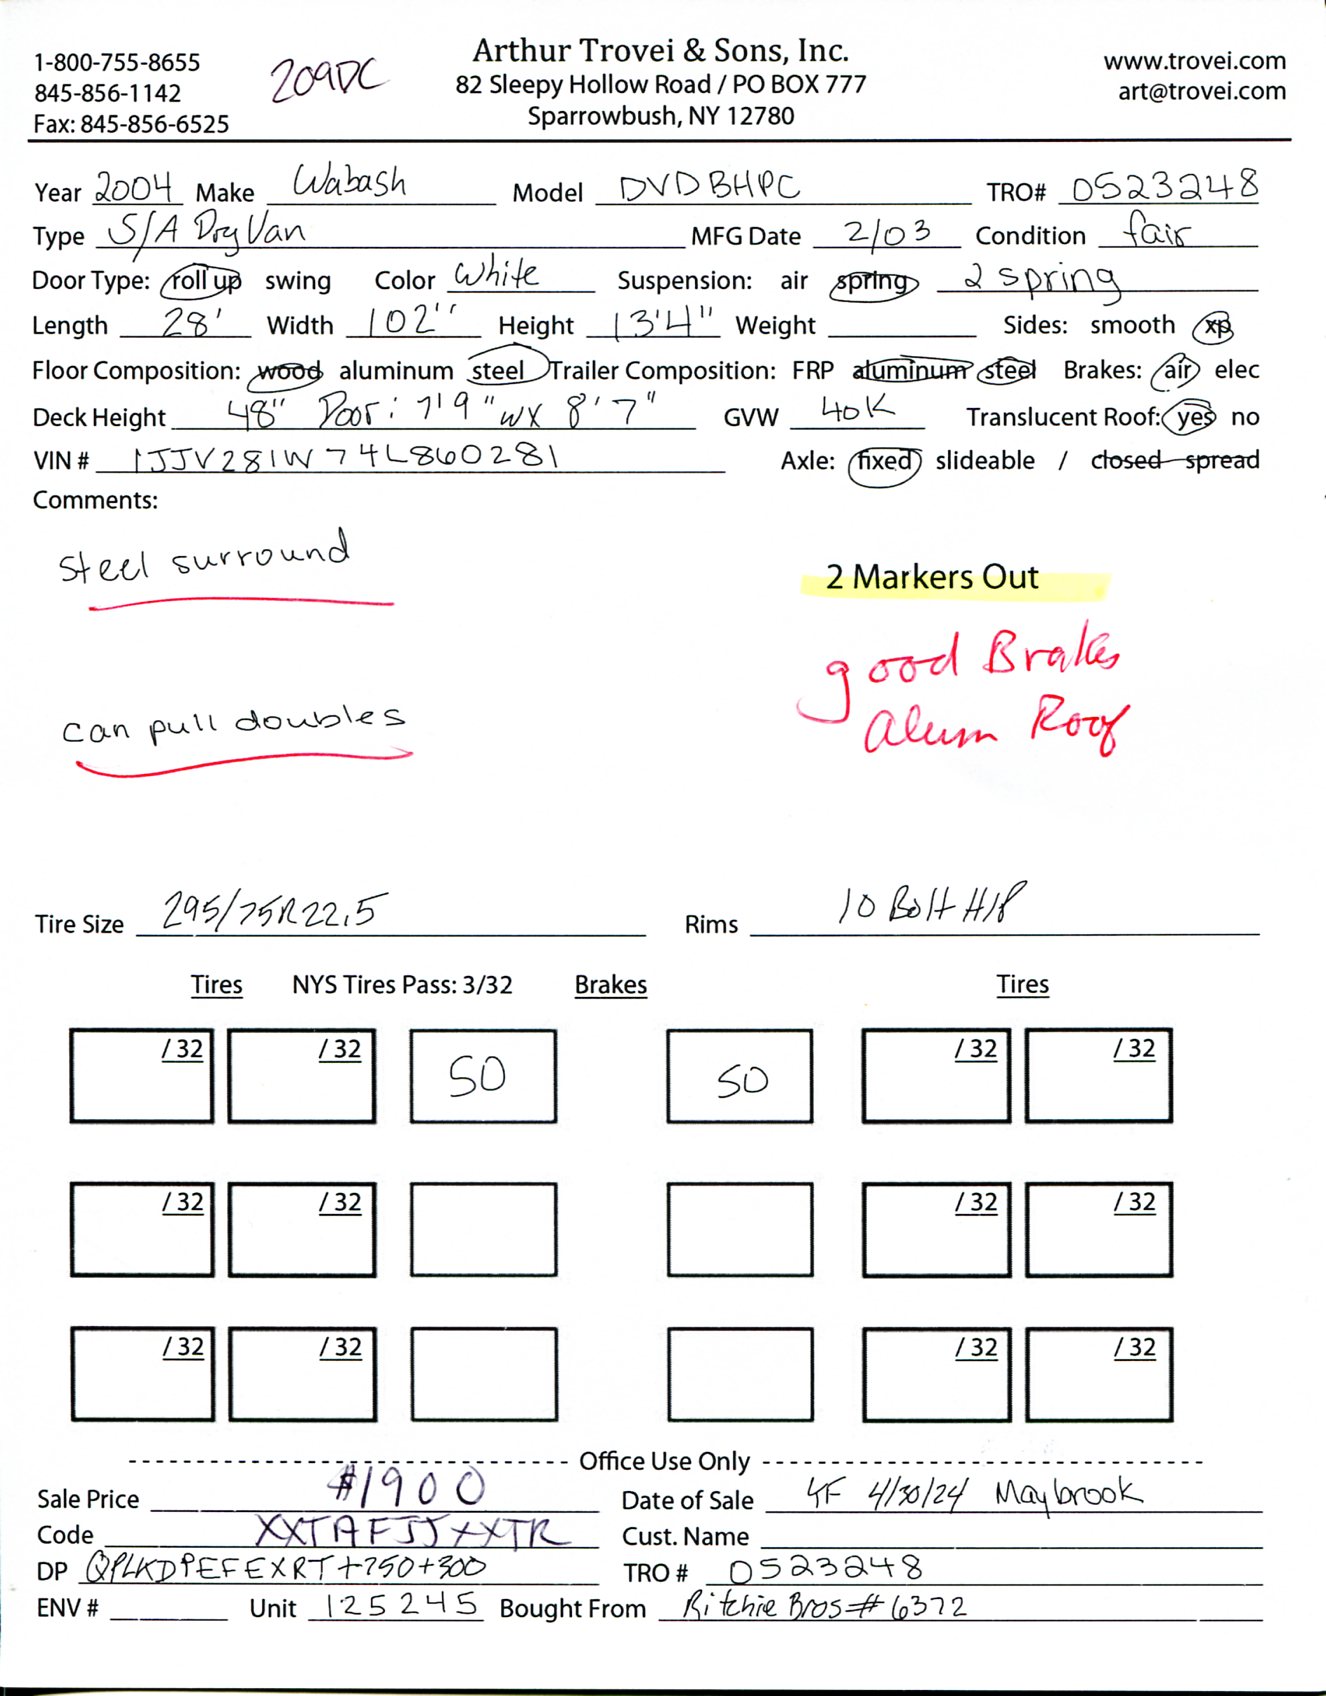 1-800-755-8655
845-856-1142
Fax: 845-856-6525
209DC
Arthur Trovei & Sons, Inc.
82 Sleepy Hollow Road / PO BOX 777
Sparrowbush, NY 12780
www.trovei.com
art@trovei.com
Year 2004 Make Wabash Model DVDBHPC TRO# 0523248
Type S/A Dry Van MFG Date 2/03 Condition fair
Door Type: roll up swing Color White Suspension: air spring 2 spring
Length 28' Width 102'' Height 13'4" Weight Sides: smooth xp
Floor Composition: wood aluminum steel Trailer Composition: FRP aluminum steel Brakes: air elec
Deck Height 48" Door: 7'9"w x 8'7" GVW 40K Translucent Roof: yes no
VIN # 1JJV281W74L860281 Axle: fixed slideable / closed spread
Comments:
steel surround
2 Markers Out
good Brakes
Alum Roof
can pull doubles
Tire Size 295/75R22.5 Rims 10 Bolt H/P
Tires NYS Tires Pass: 3/32 Brakes Tires
/ 32 / 32 50 50 / 32 / 32
/ 32 / 32 / 32 / 32
/ 32 / 32 / 32 / 32
Office Use Only
Sale Price $1900 Date of Sale 4/30/24 Maybrook
Code XXTAFJJXXTR Cust. Name
DP QPLKDPEFEXRT+750+300 TRO # 0523248
ENV # Unit 125245 Bought From Ritchie Bros # 6372